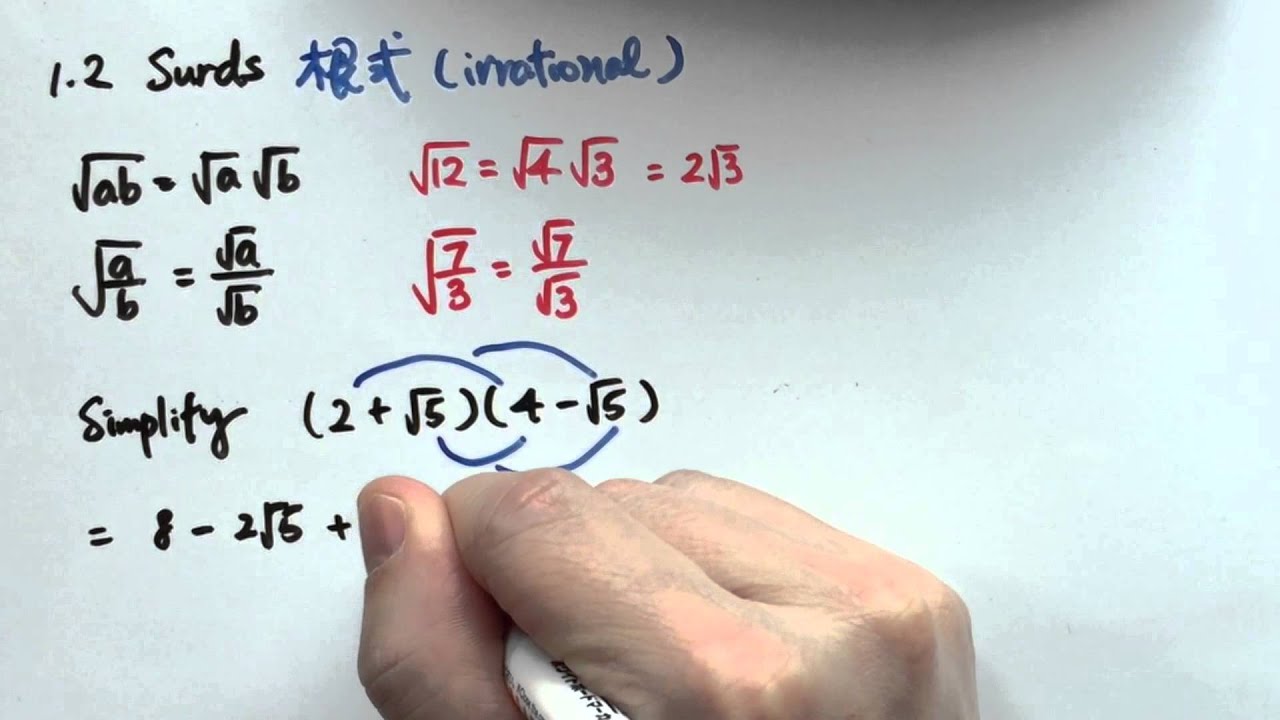 1.2 Surds 根式 (irrational)
√ab = √a √b √12 = √4 √3 = 2√3
√(a/b) = √a/√b √(7/3) = √7/√3
Simplify (2 + √5)(4 - √5)
= 8 - 2√5 +